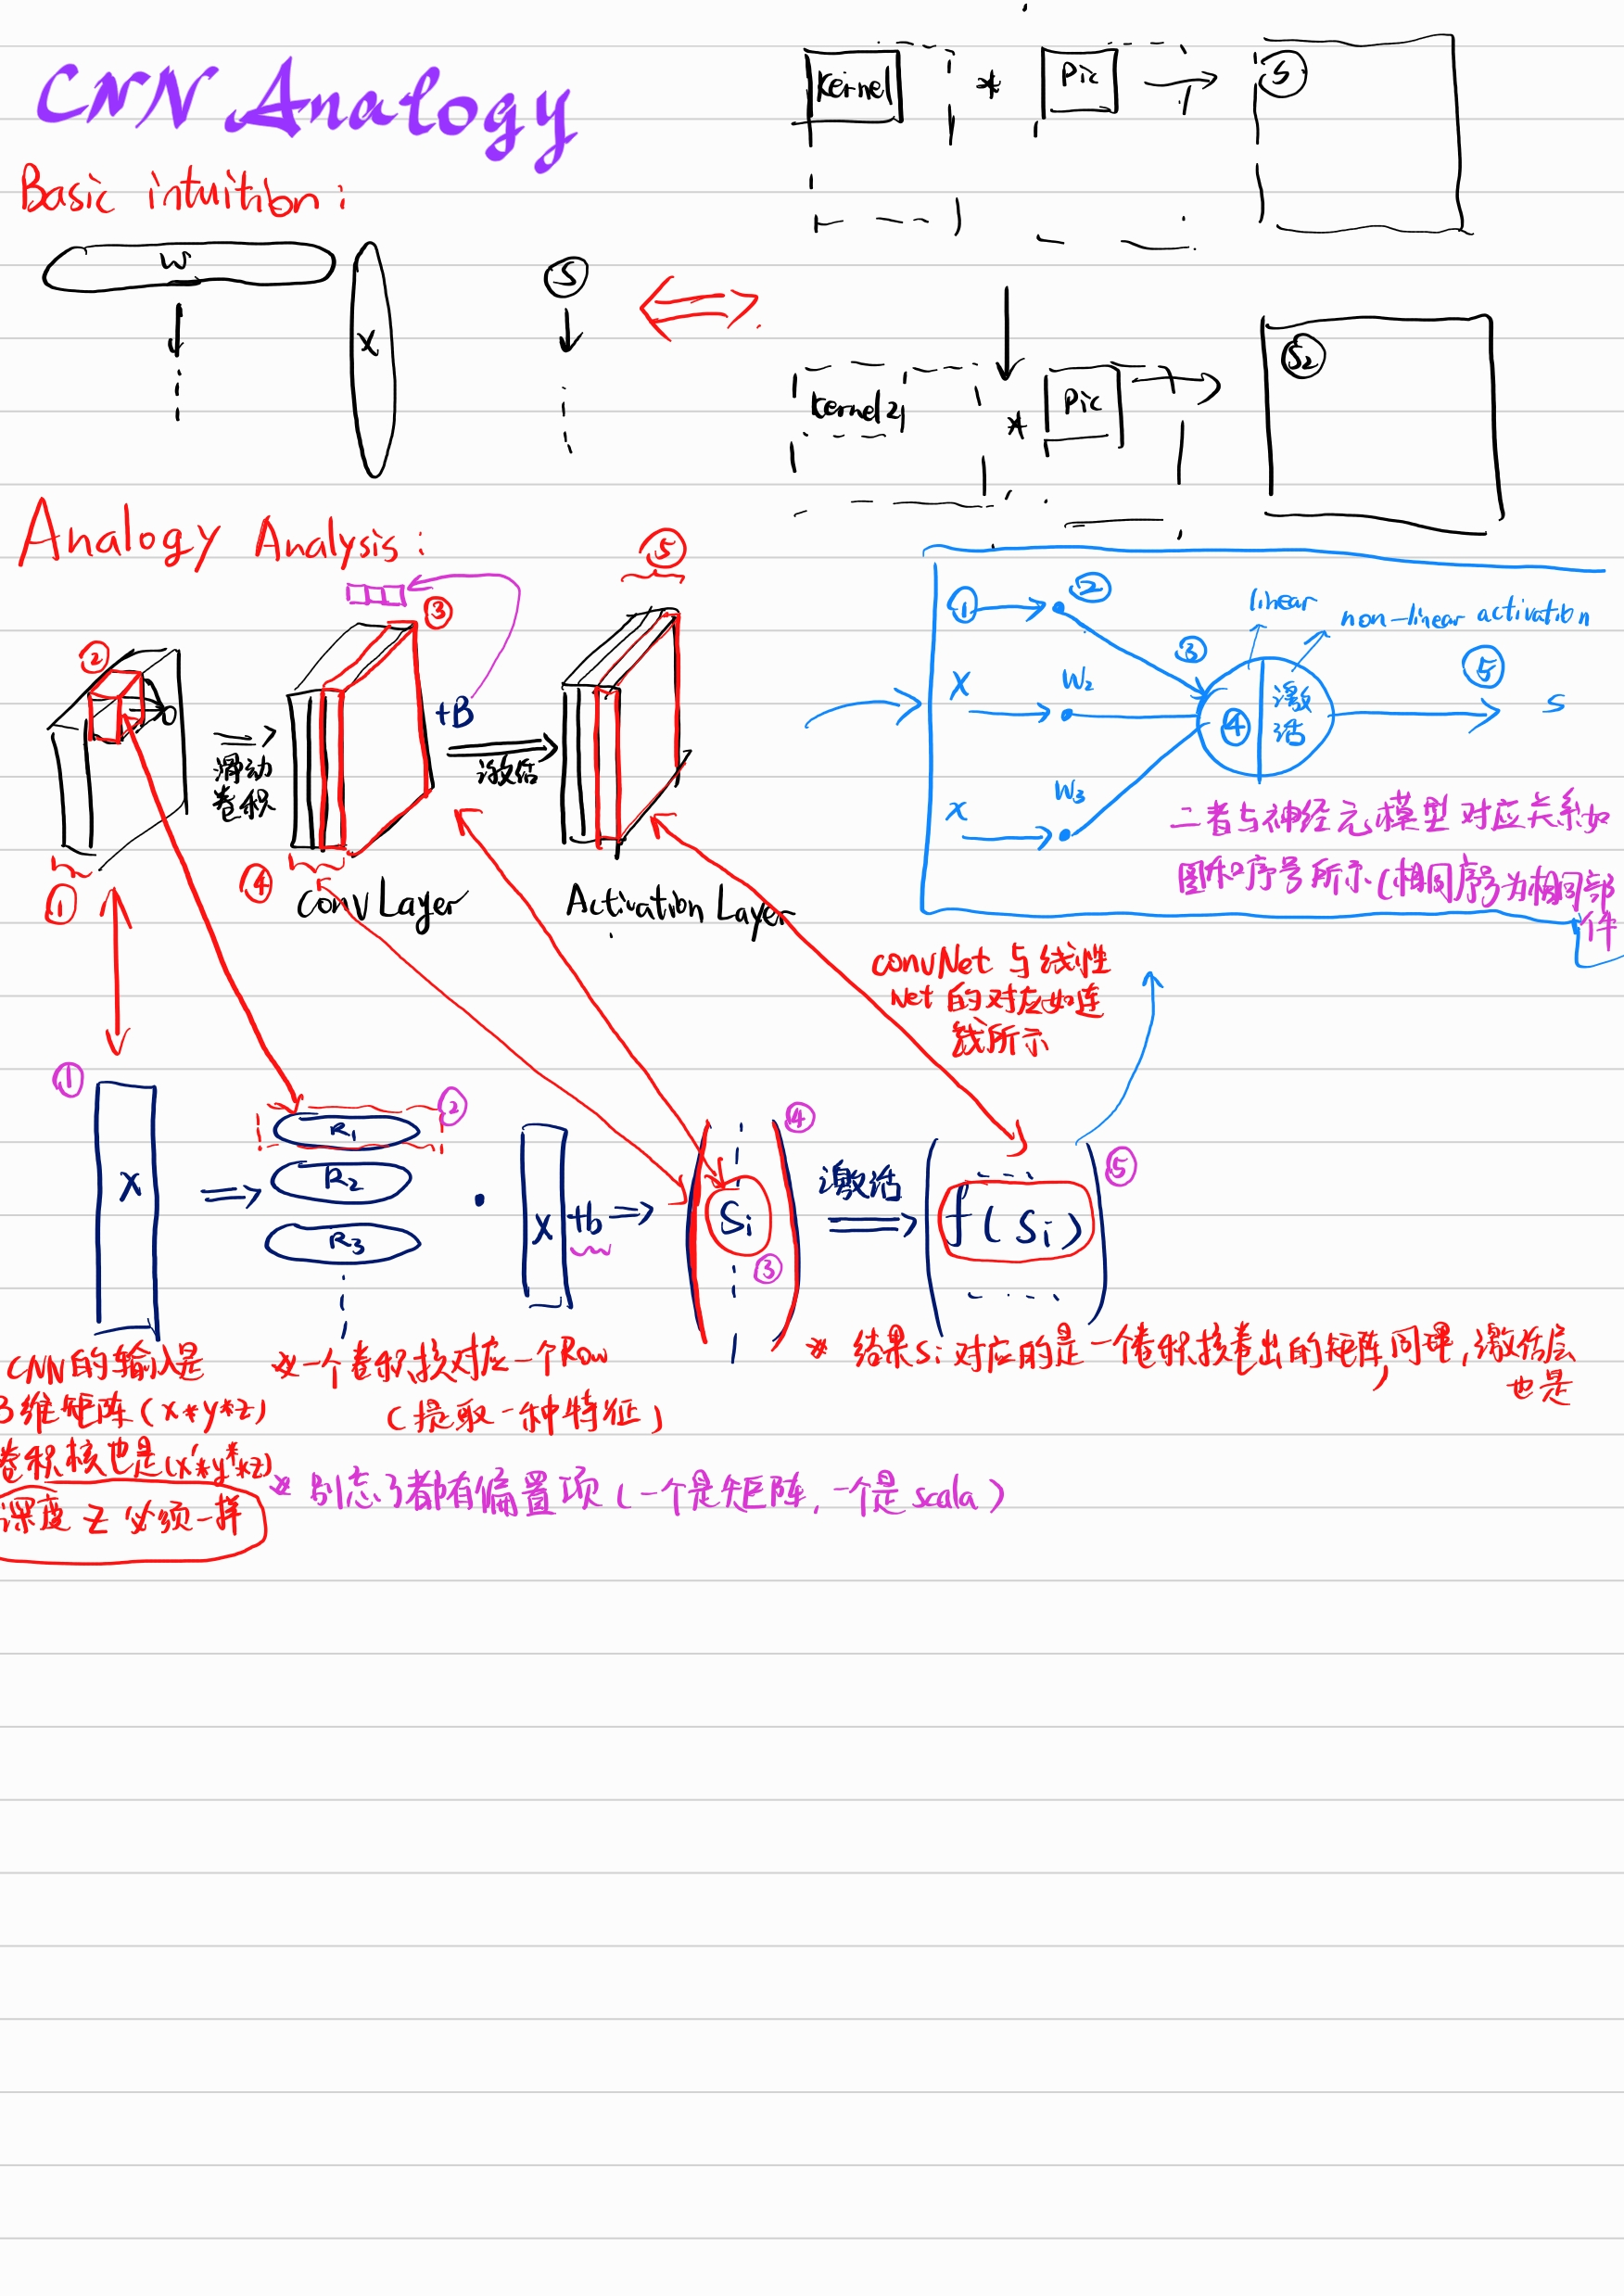 CNN Analogy
Basic intuition:
W
X
S
Kernel * Pic S
kernel2 * Pic S2
Analogy Analysis:
②
①
滑动
卷积
③
④
Conv Layer
+B
激活
⑤
Activation Layer
① ②
X W2
x W3
③
④ 激活
linear
non-linear activation
⑤
S
二者与神经元模型对应关系如
图和序号所示(相同序号为相同部
件
convNet 与线性
Net 的对应如连
线所示
①
X
R1
②
R2
R3
·
X +b
④
Si
③
激活
f(Si)
⑤
CNN的输入是
3维矩阵(x*y*z)
卷积核也是(x'*y'*z)
深度 z 必须一样
* 一个卷积核对应一个Row
(提取一种特征)
* 结果Si对应的是一个卷积核卷出的矩阵,同理,激活层
也是
* 别忘了都有偏置项(一个是矩阵,一个是scala)